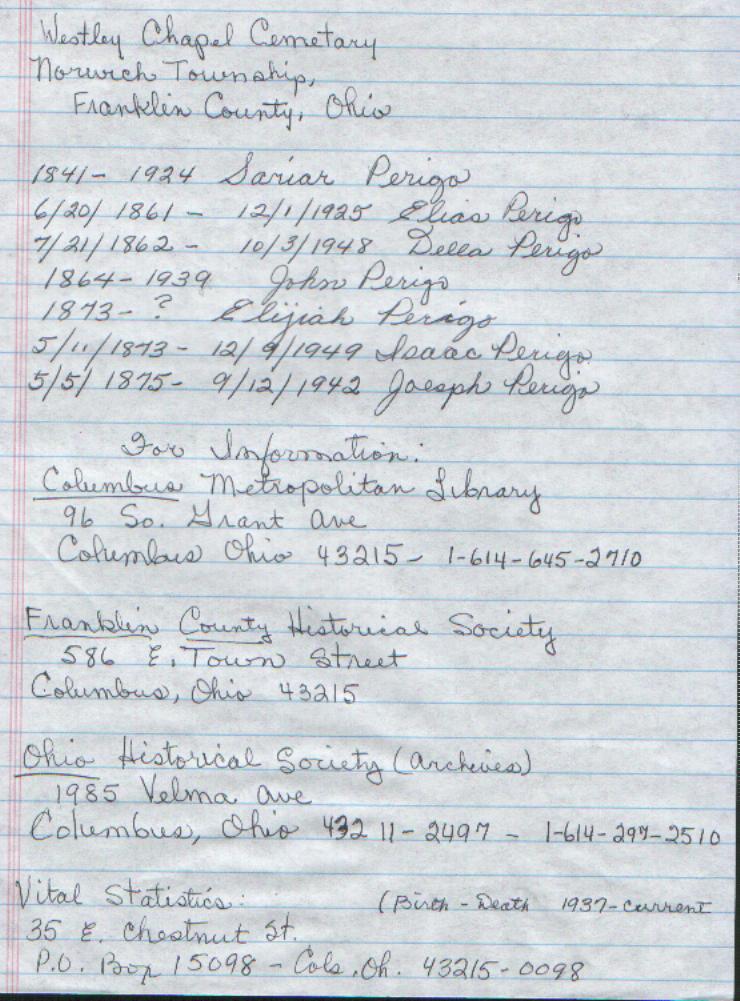 Westley Chapel Cemetary
Norwich Township,
Franklin County, Ohio
1841- 1924 Sariar Perigo
6/20/1861 - 12/1/1925 Elias Perigo
7/21/1862 - 10/3/1948 Della Perigo
1864-1939 John Perigo
1873- ? Elijiah Perigo
5/11/1873 - 12/9/1949 Isaac Perigo
5/5/1875- 9/12/1942 Joesph Perigo
For Information:
Columbus Metropolitan Library
96 So. Grant Ave
Columbus Ohio 43215- 1-614-645-2710
Franklin County Historical Society
586 E. Town Street
Columbus, Ohio 43215
Ohio Historical Society (archives)
1985 Velma Ave
Columbus, Ohio 43211-2497 - 1-614-297-2510
Vital Statistics: (Birth - Death 1937-current
35 E. Chestnut St.
P.O. Box 15098 - Cols, Oh. 43215-0098